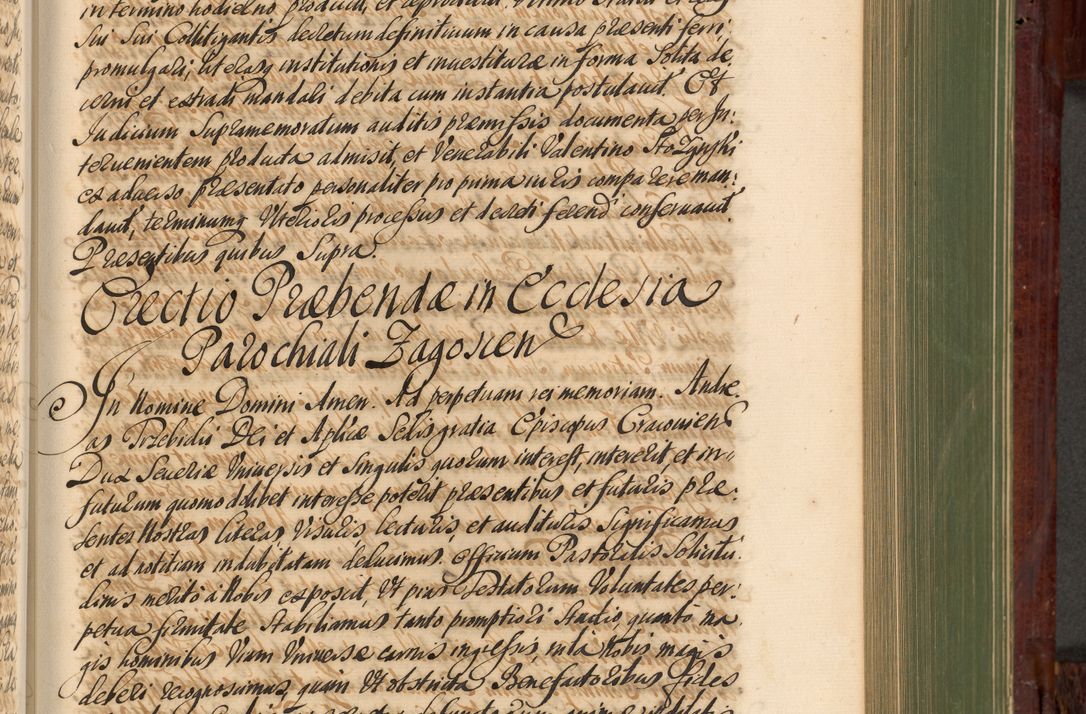 in termino hodierno produxit, et reproduxit
sui sui Collitigantis decretum definitivum in causa præsenti ferri,
promulgari, literasq institutionis et investituræ in forma Solita de,
cerni et extradi mandari debita cum instantia postulavit. Et
Judicium Supramemoratum auditis præmissis documenta per In:
tervenientem producta admisit, et Venerabili Valentino
ex adverso præsentato personaliter pro prima iuris comparere man:
davit, terminumq Ulterioris processus et decreti ferend conservavit.
Præsentibus quibus Supra.
Erectio Præbendæ in Ecclesia
Parochiali Zagoscien
In Nomine Domini Amen. Ad perpetuam rei memoriam. Andre,
as Trzebicki Dei et Aplicæ Sedis gratia Episcopus Cracovien
Dux Severiæ Universis et Singulis quorum interest, intererit, et in,
futurum quomodolibet interesse poterit præsentibus et futuris præ:
sentes Nostras literas Visuris, lecturis, et audituris Significamus
et ad notitiam indubitatam deducimus. Officium Pastoralis Solicitu:
dinis merito à Nobis exposcit, Ut pias Testatorum Voluntates per:
petua firmitate Stabiliamus tanto promptiori Studio, quanto ma,
gis hominibus Viam Universæ carnis ingressis, in Nobis magis
deberi recognoscimus, quam Ut obstricta Benefactoribus fides